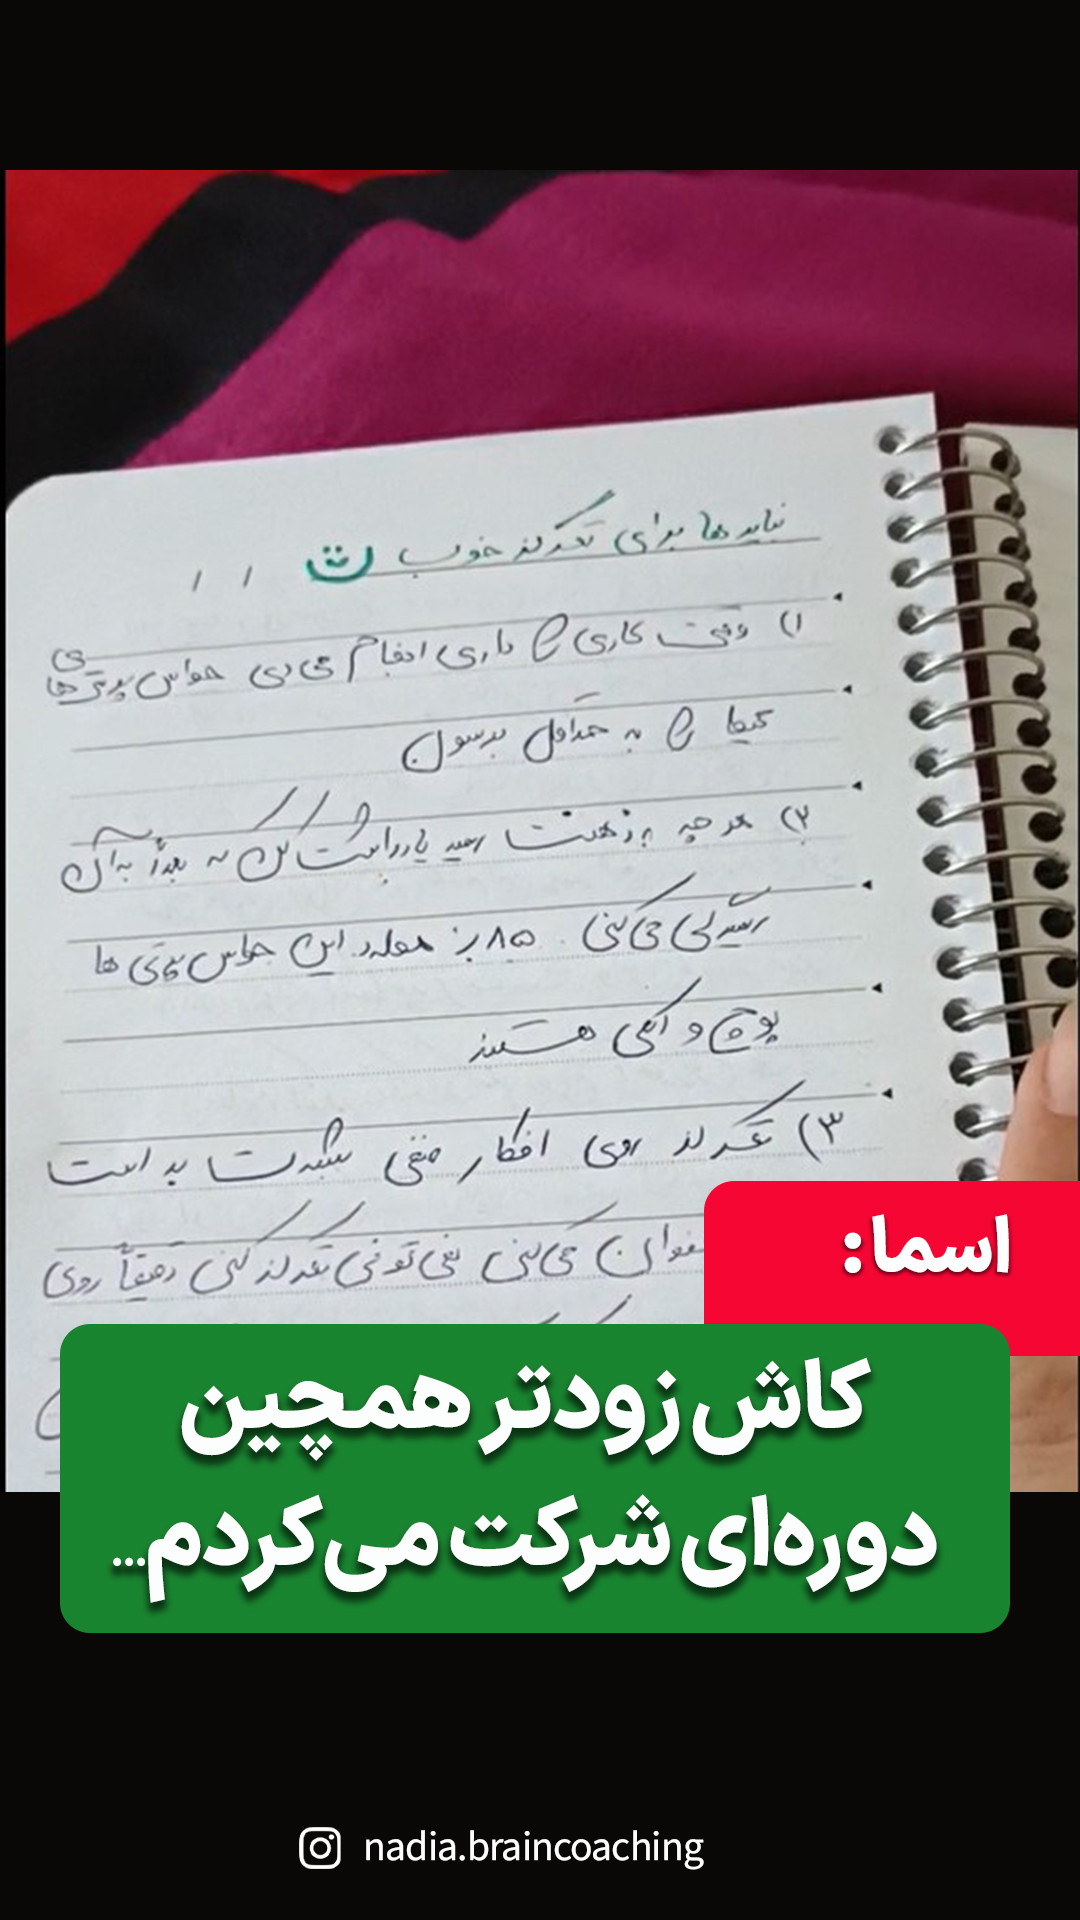 نبایدها برای تمرکز خوب
۱) وقتی کاری را داری انجام می‌دی حواس پرتی‌های
محیط را به حداقل برسون
۲) هر چه به ذهنت رسید یادداشت کن که بعداً به آن
رسیدگی می‌کنی. ۸۵٪ موارد این حواس پرتی ها
پوچ و الکی هستند
۳) تمرکز روی افکار منفی بشدت بد است
می‌کنی نمی‌تونی تمرکز کنی دقیقاً روی
اسما:
کاش زودتر همچین
دوره‌ای شرکت می‌کردم...
nadia.braincoaching